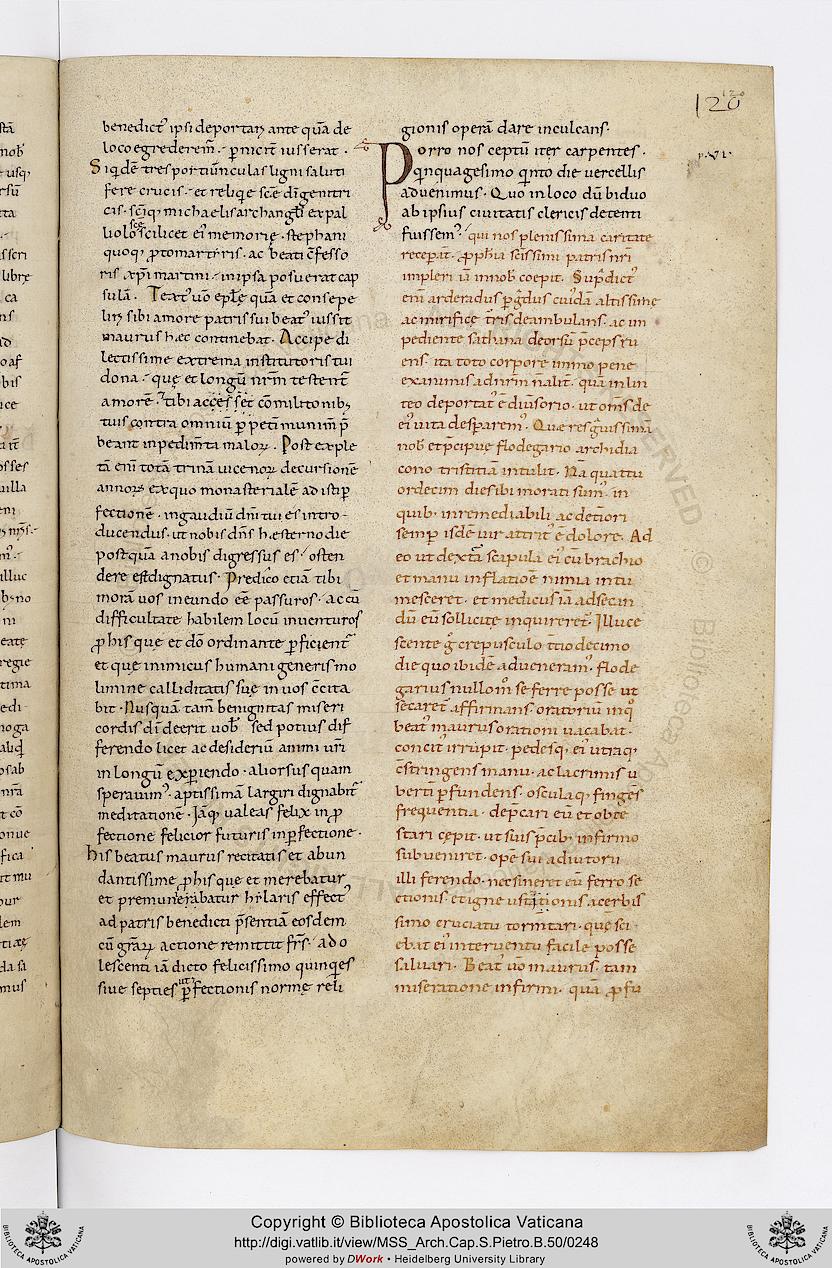 120
120
benedictꝰ ipsi deportarꝫ ante quā de
loco egrederemꝰ. ꝑnicitꝰ iusserat.
Siqidē tres portiunculas ligni saluti
fere crucis. et reliqie scē dī genitri
cis. scīq; michaelis archangli ex pal
liolo scilicet eiꝰ memorię. stephani
quoq; ꝓtomartiris. ac beati cfesso
ris xp̄i martini. in ipsa posuerat cap
sulā. Textꝰ uō eplę quā et consepe
lirꝫ sibi amore patris sui beatꝰ iussit
maurus hęc continebat. Accipe di
lectissime extrema institutoris tui
dona. quę et longū nr̄m testentꝰ
amorē. tibi acces set cōmilitonibꝫ
tuis contra omniū ꝑpetī munimꝰ ꝑ
beant inpedimta malorꝫ. Post exple
tā enī totā trinā uicenorꝫ decursione
annorꝫ ex quo monasterialē adistiꝑ
fectionē. in gaudiū dnī tui es intro
ducendus. ut nobis dn̄s hesterno die
postquā a nobis digressus es. osten
dere est dignatus. Predico etiā tibi
morā uos in eundo eē passuros. ac cū
difficultate habilem locū inuenturos
ꝓ his que et dō ordinante ꝑficientꝰ
et que inimicus humani generis mo
limine calliditatis suę in uos cc̄ita
bit. Nusquā tam benignitas miseri
cordis dī deerit uob. sed potius dif
ferendo licet ac desideriū animi urī
in longū expeniendo. aliorsus quam
speratuimꝰ. aptissimā largiri dignabitꝰ
meditationē. Iāq; ualeas felix in ꝓ
fectione felicior futuris in ꝑfectione.
his beatus maurus recitatis et abun
dantissime ꝓ his que et merebatur
et premunerabatur hilaris effectꝰ
ad patris benedicti p̄sentiā eosdem
cū grarꝫ actione remittit fr̄s. ado
lescenti iā dicto felicissimo quinqies
siue septies ut ꝑfectionis normę reli
gionis operā dare inculcans.
Porro nos ceptū iter carpentes.
qinquagesimo qinto die uercellis
aduenimus. Quo in loco dū biduo
ab ipsius ciuitatis clericis detenti
fuissemꝰ. qui nos plenissima caritate
receperāt. ꝓphīa scīssimi patris nr̄i
impleri iā in nob coepit. Suprdictꝰ
enī arderadus ꝑ grdus cuiꝰdā altissimę
ac mirifice trris deambulans. ac im
pediente sathana deorsū p̄ceps ru
ens. ita toto corpore immo pene
exanimis ad nr̄m
teo deportatꝰ ē diuersorio. ut om̄s de
eiꝰ uita desparem. Quę res grauissimā
nob et p̄cipue flodegario archidia
cono tristitiā intulit. Nā quattu
ordecim dies ibi morati sumꝰ. in
quibꝰ. inremediabili ac detiori
semꝑ isdē uir attritꝰ ē dolore. Ad
eo ut dextā scapula eiꝰ cū brachio
et manu inflatioē nimia intu
mesceret. et medicus iā ad secan
dū eū sollicite inquireretꝰ. Illuce
scente g crepusculo tio decimo
die quo ibidē aduenerāmꝰ. flode
garius nullom se ferre posse ut
secaretꝰ affirmans. oratoriū in q
beatꝰ maurus orationi uacabat.
concitꝰ irrupit. pedesq; eiꝰ utraq;
cstringens manu. ac lacrimis u
bertī ꝑfundens. osculaq; fingēs
frequentia. dep̄cari eū et obte
stari cępit. ut suis p̄cibꝰ infirmo
subueniret. opē sui adiutorii
illi ferendo. nec sineret eū ferro se
ctionis et igne ustionis acerbis
simo cruciatu tormtari. quē sci
ebat eiꝰ interuentu facile posse
saluari. Beatꝰ uō maurus. tam
miseratione infirmi. quā ꝓfu
Copyright © Biblioteca Apostolica Vaticana
http://digi.vatlib.it/view/MSS_Arch.Cap.S.Pietro.B.50/0248
powered by DWork • Heidelberg University Library